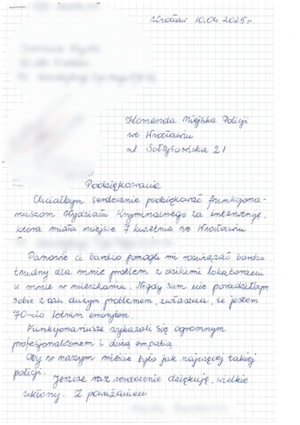 Wrocław 10.04 2025 r.
Komenda Miejska Policji
we Wrocławiu
ul. Sołtysowicka 21
Podziękowanie
Chciałbym serdecznie podziękować funkcjona-
riuszom Wydziału Kryminalnego za interwencję,
która miała miejsce 7 kwietnia we Wrocławiu
Panowie Ci bardzo pomogli mi rozwiązać bardzo
trudny dla mnie problem z dzikimi lokatorami
u mnie w mieszkaniu. Nigdy sam nie poradziłbym
sobie z tak dużym problemem, zwłaszcza, że jestem
70-cio letnim emerytem.
Funkcjonariusze wykazali się ogromnym
profesjonalizmem i dużą empatią
Oby w naszym mieście było jak najwięcej takiej
policji.
Jeszcze raz serdecznie dziękuję, wielkie
ukłony. Z poważaniem